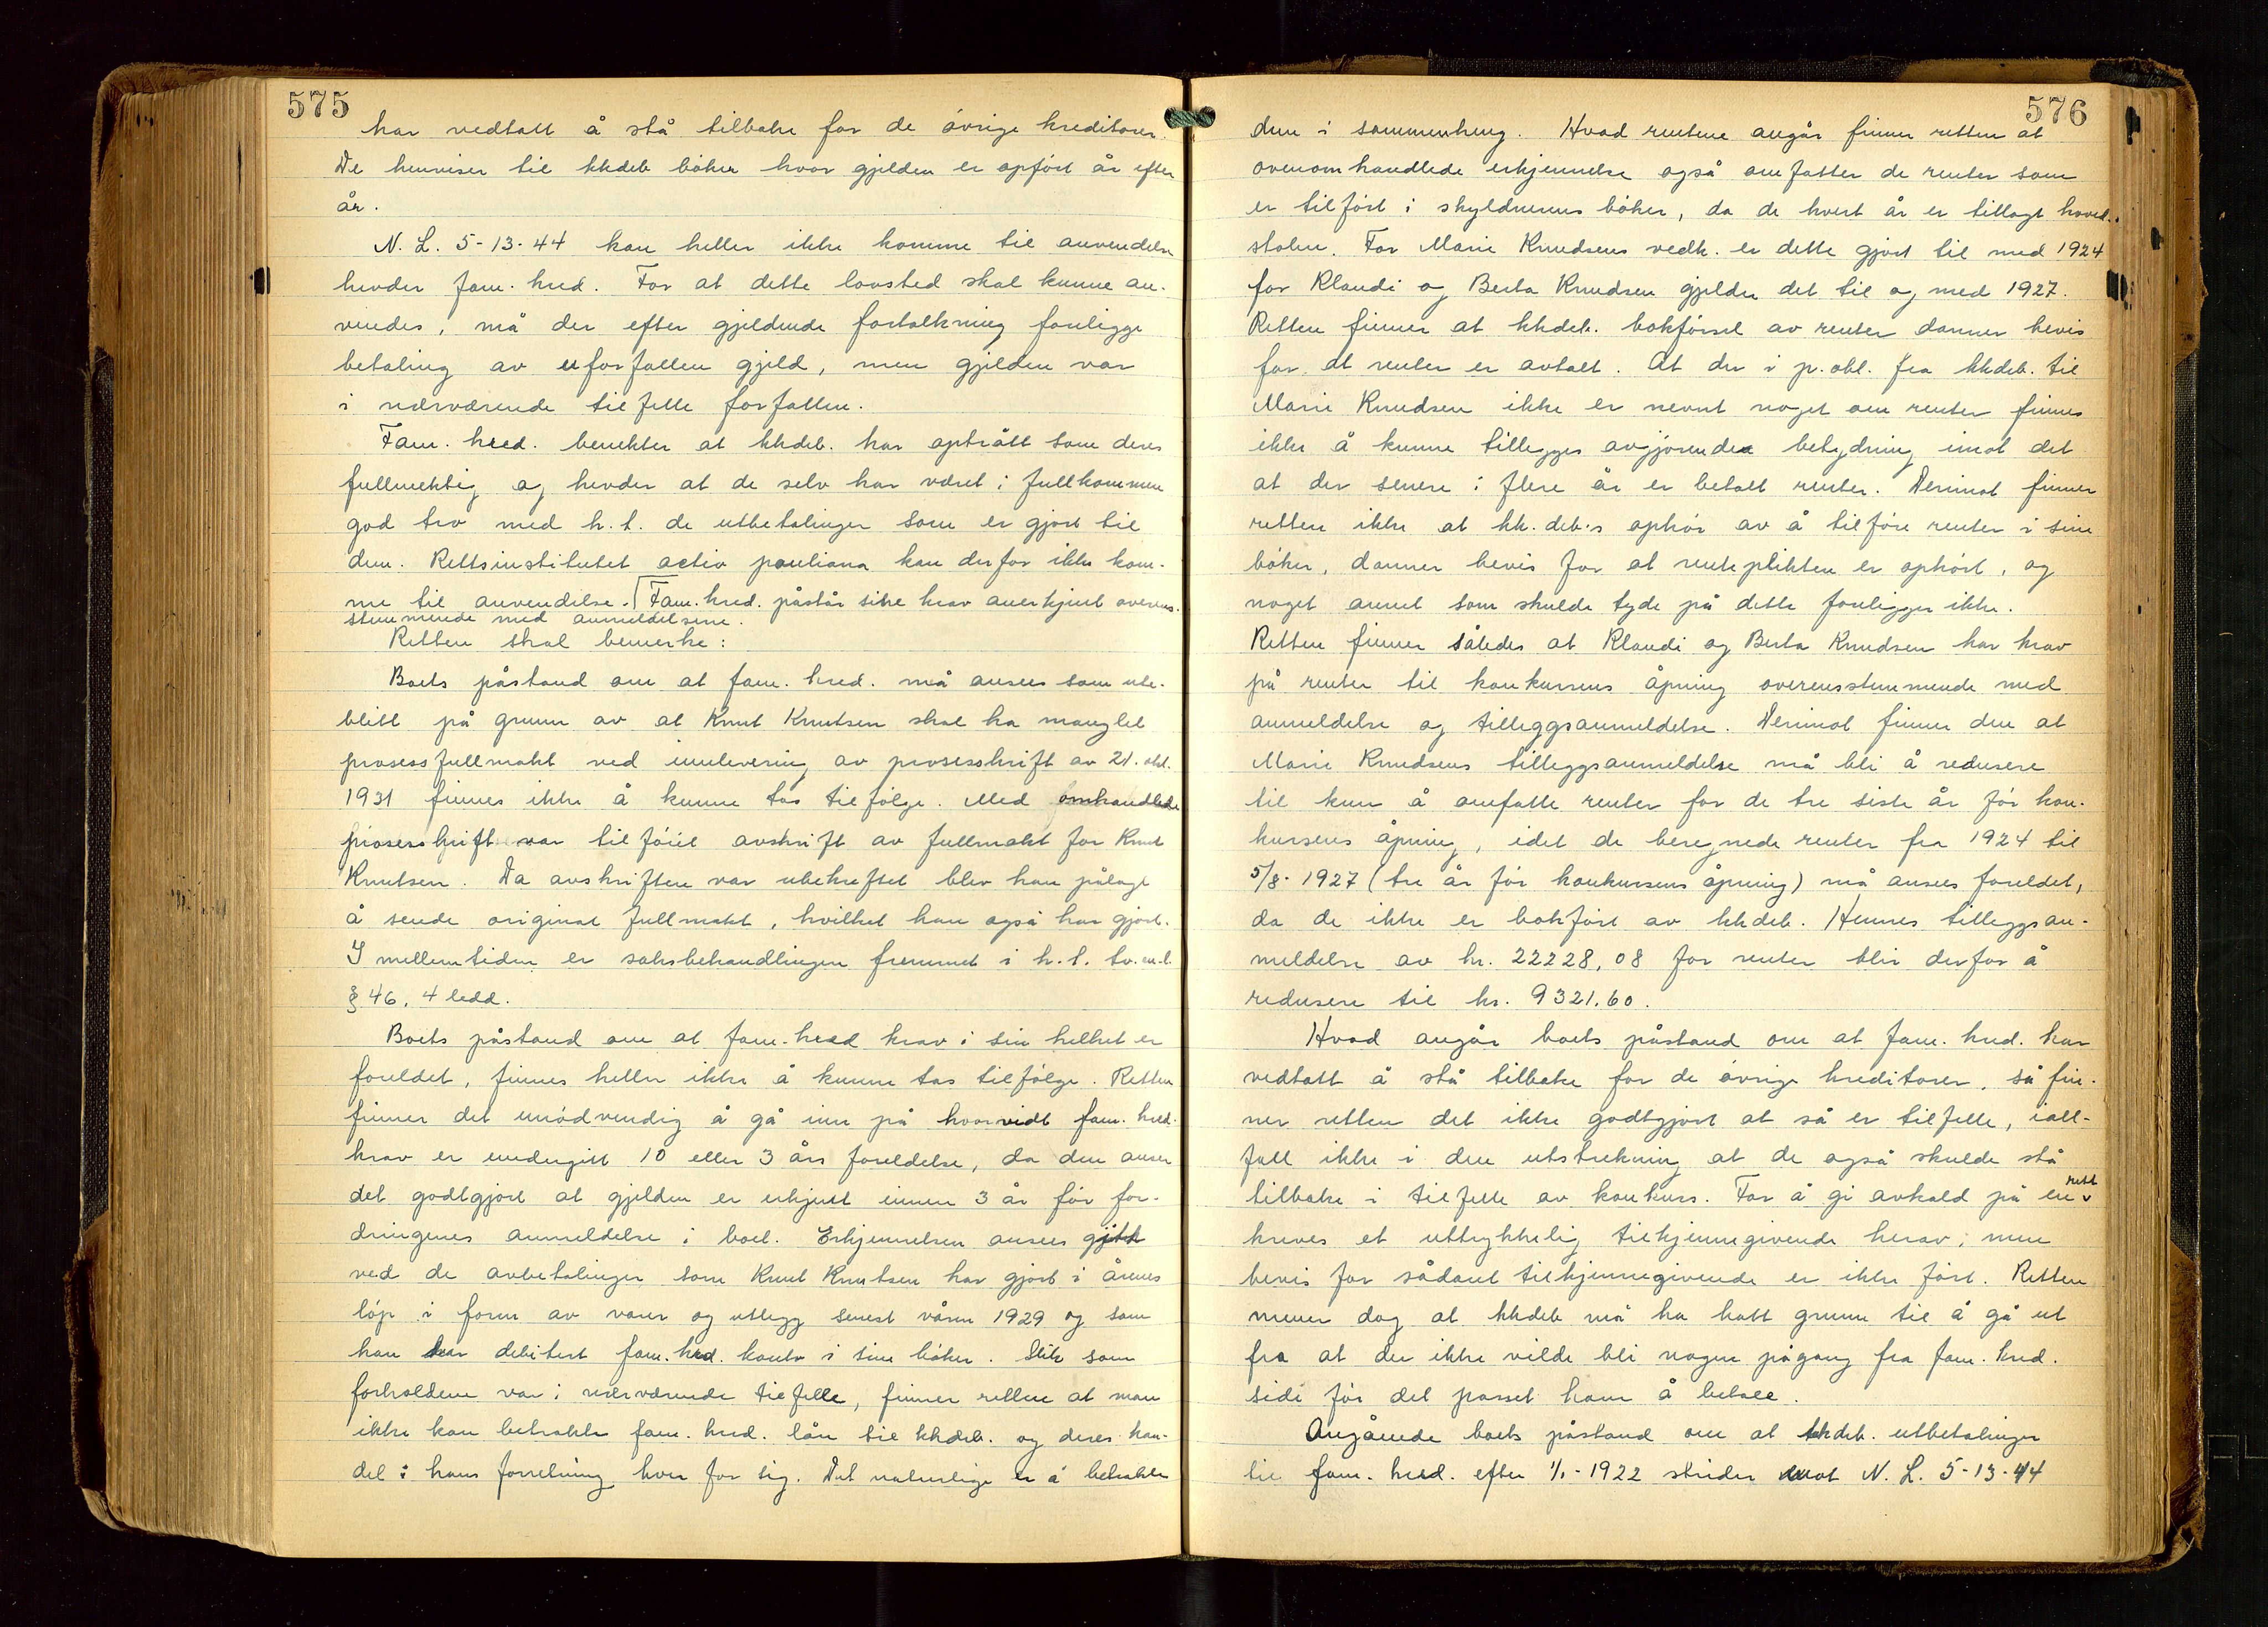 575
har vedtatt å stå tilbake for de övrige kreditorer.
De henviser til kkdeb böker hvor gjelden er opfört år efter
år.
N. L. 5-13-44 kan heller ikke komme til anvendelse
hevder fam. kred. For at dette lovsted skal kunne an-
vendes, må der efter gjeldende fortolkning foreligge
betaling av uforfallen gjeld, men gjelden var
i nærværende tilfelle forfallen.
Fam. kred. benekter at kkdeb. har optrått som deres
fullmektig og hevder at de selv har været i fullkommen
god tro med h.t. de utbetalinger som er gjort til
dem. Rettsinstitutet actio pauliana kan derfor ikke kom-
me til anvendelse. Fam. kred. påstår sine krav anerkjent overens-
stemmende med anmeldelsene.
Retten skal bemerke:
Boets påstand om at fam. kred. må ansees som ute-
blitt på grunn av at Knut Knutsen skal ha manglet
prosessfullmakt ved innlevering av prosesskrift av 21. okt.
1931 finnes ikke å kunne tas tilfölge. Med omhandlede
prosesskrift var tilföiet avskrift av fullmakt for Knut
Knutsen. Da avskriften var ubekreftet blev han pålagt
å sende original fullmakt, hvilket han også har gjort.
I mellemtiden er saksbehandlingen fremmet i h.t. tv.m.l.
§ 46, 4 ledd.
Boets påstand om at fam. kred krav i sin helhet er
foreldet, finnes heller ikke å kunne tas tilfölge. Retten
finner det unödvendig å gå inn på hvorvidt fam. kred.
krav er undergitt 10 eller 3 års foreldelse, da den anser
det godtgjort at gjelden er erkjent innen 3 år för for-
dringenes anmeldelse i boet. Erkjennelsen ansees gitt
ved de avbetalinger som Knut Knutsen har gjort i årenes
löp i form av varer og utlegg senest våren 1929 og som
han har debitert fam. kred. konto i sine böker. Slik som
forholdene var i nærværende tilfelle, finner retten at man
ikke kan betrakte fam. kred. lån til kkdeb. og deres han-
del i hans forretning hver for sig. Det naturlige er å betrakte
576
dem i sammenheng. Hvad rentene angår finner retten at
ovenomhandlede erkjennelse også omfatter de renter som
er tilfört i skyldnerens böker, da de hvert år er tillagt hoved-
stolen. For Marie Knudsens vedk. er dette gjort til med 1924
for Klaudi og Berta Knudsen gjelder det til og med 1927.
Retten finner at kkdeb. bokförsel av renter danner bevis
for at renter er avtalt. At der i p. obl. fra kkdeb. til
Marie Knudsen ikke er nevnt noget om renter finnes
ikke å kunne tillegges avgjörende betydning imot det
at der senere i flere år er betalt renter. Derimot finner
retten ikke at kk. deb.s ophör av å tilföre renter i sine
böker, danner bevis for at renteplikten er ophört, og
noget annet som skulde tyde på dette foreligger ikke.
Retten finner således at Klaudi og Berta Knudsen har krav
på renter til konkursens åpning overensstemmende med
anmeldelse og tilleggsanmeldelse. Derimot finner den at
Marie Knudsens tilleggsanmeldelse må bli å redusere
til kun å omfatte renter for de tre siste år för kon-
kursens åpning, idet de beregnede renter fra 1924 til
5/8-1927 (tre år för konkursens åpning) må ansees foreldet,
da de ikke er bokfört av kkdeb. Hennes tilleggsan-
meldelse av kr. 22228,08 for renter blir derfor å
redusere til kr. 9321.60.
Hvad angår boets påstand om at fam. kred. har
vedtatt å stå tilbake for de övrige kreditorer, så fin-
ner retten det ikke godtgjort at så er tilfelle, iall-
fall ikke i den utstrekning at de også skulde stå
tilbake i tilfelle av konkurs. For å gi avkald på en rett
kreves et uttrykkelig tilkjennegivende herav, men
bevis for sådant tilkjennegivende er ikke fört. Retten
mener dog at kkdeb må ha hatt grunn til å gå ut
fra at der ikke vilde bli nogen pågang fra fam. kred.
side för det passet ham å betale.
Angående boets påstand om at kkdeb. utbetalinger
til fam. kred. efter 1/1-1922 strider mot N. L. 5-13-44